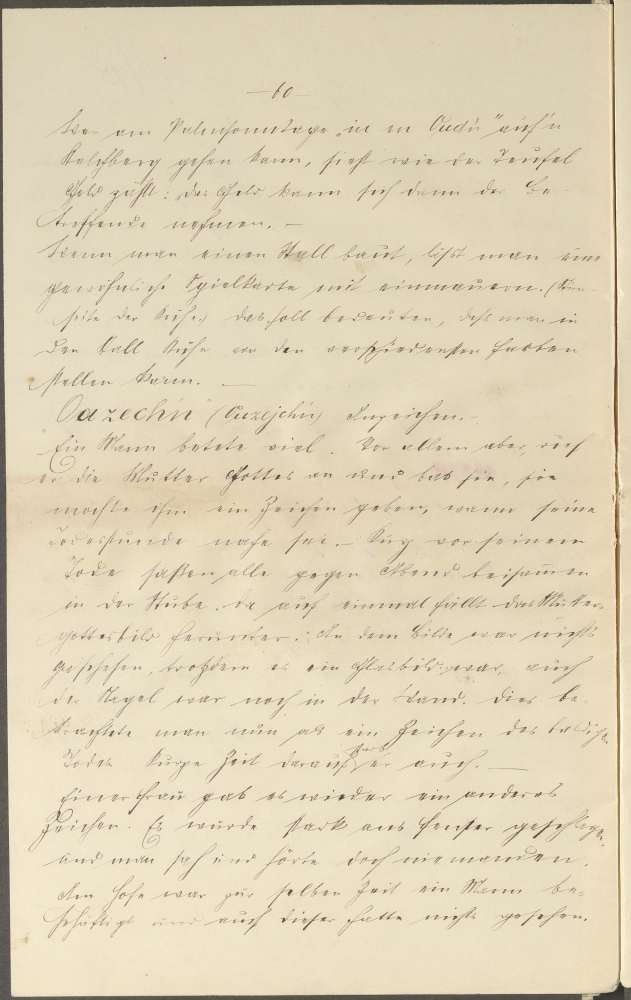 — 60 —
Wer am Palmsonntage „in m Oudn“ auf'n
Kalchberg gehen kann, sieht wie der Teufel
Geld zählt: das Geld kann sich dann der Be-
treffende nehmen. —
Wenn man einen Stall baut, läßt man eine
gewöhnliche Spielkarte mit einmauern. (
seite der Kuhe) das soll bedeuten, daß man in
den Stall Kühe von den verschiedensten Farben
stellen kann. —
Oazechn (Oazejchn) Anzeichen. —
Ein Mann betete viel. Vor allem aber rief
er die Mutter Gottes an und bat sie, sie
möchte ihm ein Zeichen geben, wann seine
Todesstunde nahe sei. — Kurz vor seinem
Tode saßen alle gegen Abend beisammen
in der Stube. Da auf einmal fällt das Mutter-
gottesbild herunter. An dem Bilde war nichts
geschehen, trotzdem es ein Glasbild war, auch
der Nagel war noch in der Wand. Dies be-
trachtete man nun als ein Zeichen des baldigen
Todes. Kurze Zeit darauf starb er auch. —
Einer Frau gab es wieder ein anderes
Zeichen. Es wurde stark ans Fenster geschlagen
und man sah und hörte doch niemanden.
Am Hofe war zur selben Zeit ein Mann be-
schäftigt und auch dieser hatte nichts gesehen.